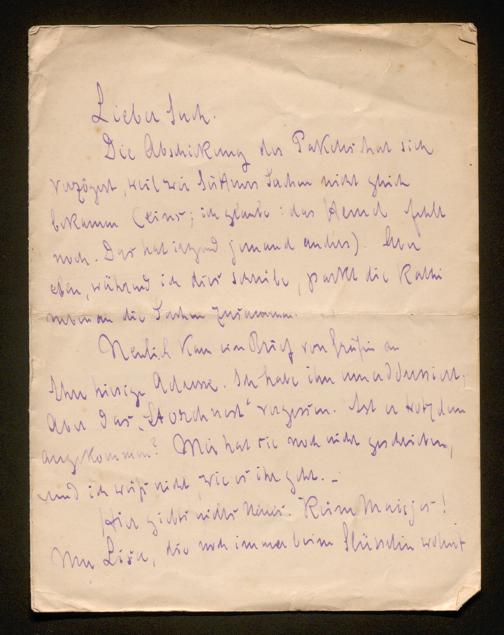 Lieber
Die Abschickung des Paketes hat sich
verzögert, weil wir Sachen nicht gleich
bekamen (eins; ich glaube: das Hemd fehlt
noch. Das hat irgend jemand anders). Aber
eben, während ich dies schreibe, packt die
nebenan die Sachen zusammen.
Neulich kam ein Brief von Gräfin an
Ihre hiesige Adresse. Ich habe ihn umaddressiert;
Aber das „Storchnest“ vergessen. Ist er trotzdem
angekommen? Mir hat sie noch nicht geschrieben,
und ich weiß nicht, wie es ihr geht. –
Hier giebts nichts Neues. Keine !
Nur Lisa, die noch immer beim wohnt